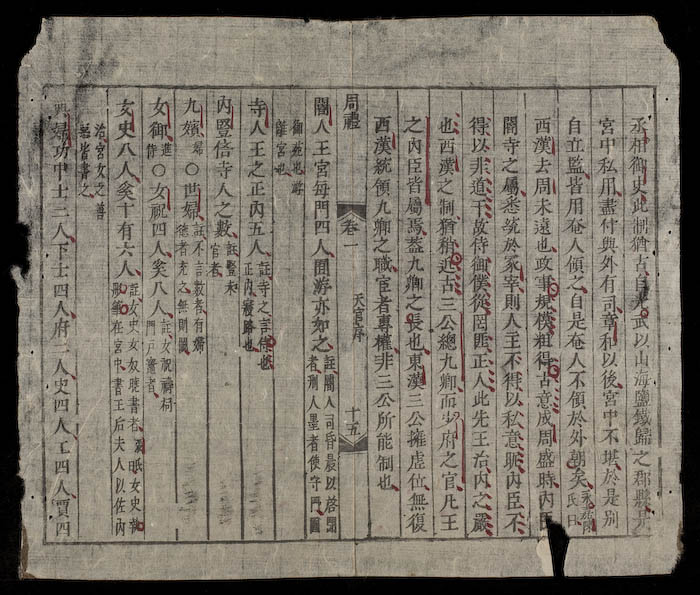 丞相御史此制猶古自武以山海鹽鐵歸之郡縣
宮中私用盡付與外有司章和以後宮中不堪於是別
自立監皆用奄人領之自是奄人不領於外朝矣永嘉陳氏曰
西漢去周未遠也政事規模粗得古意成周盛時內臣
閽寺之屬悉統於冢宰則人主不得以私意昵內臣不
得以非道干故侍御僕從罔匪正人此先王治內之嚴
也西漢之制猶粗近古三公總九卿而少府之官凡王
之內臣皆屬焉蓋九卿之長也東漢三公擁虛位無復
西漢統領九卿之職宦者專權非三公所能制也
周禮 卷一 天官序 十五
閽人王宮每門四人囿游亦如之註閽人司昏晨以啓閉者刑人墨者使守門囿
御苑也游離宮也
寺人王之正內五人註寺之言侍也正內路寢也
內豎倍寺人之數註豎未官者
九嬪婦〇世婦註不言數者有婦德者充之無則闕
女御進御〇女祝四人奚八人註女祝禱祠門戶竈者
女史八人奚十有六人註女史女奴曉書者女史執彤筆在宮中書王后夫人以佐內
治宮女之善惡皆書之
典婦功中士二人下士四人府二人史四人工四人賈四